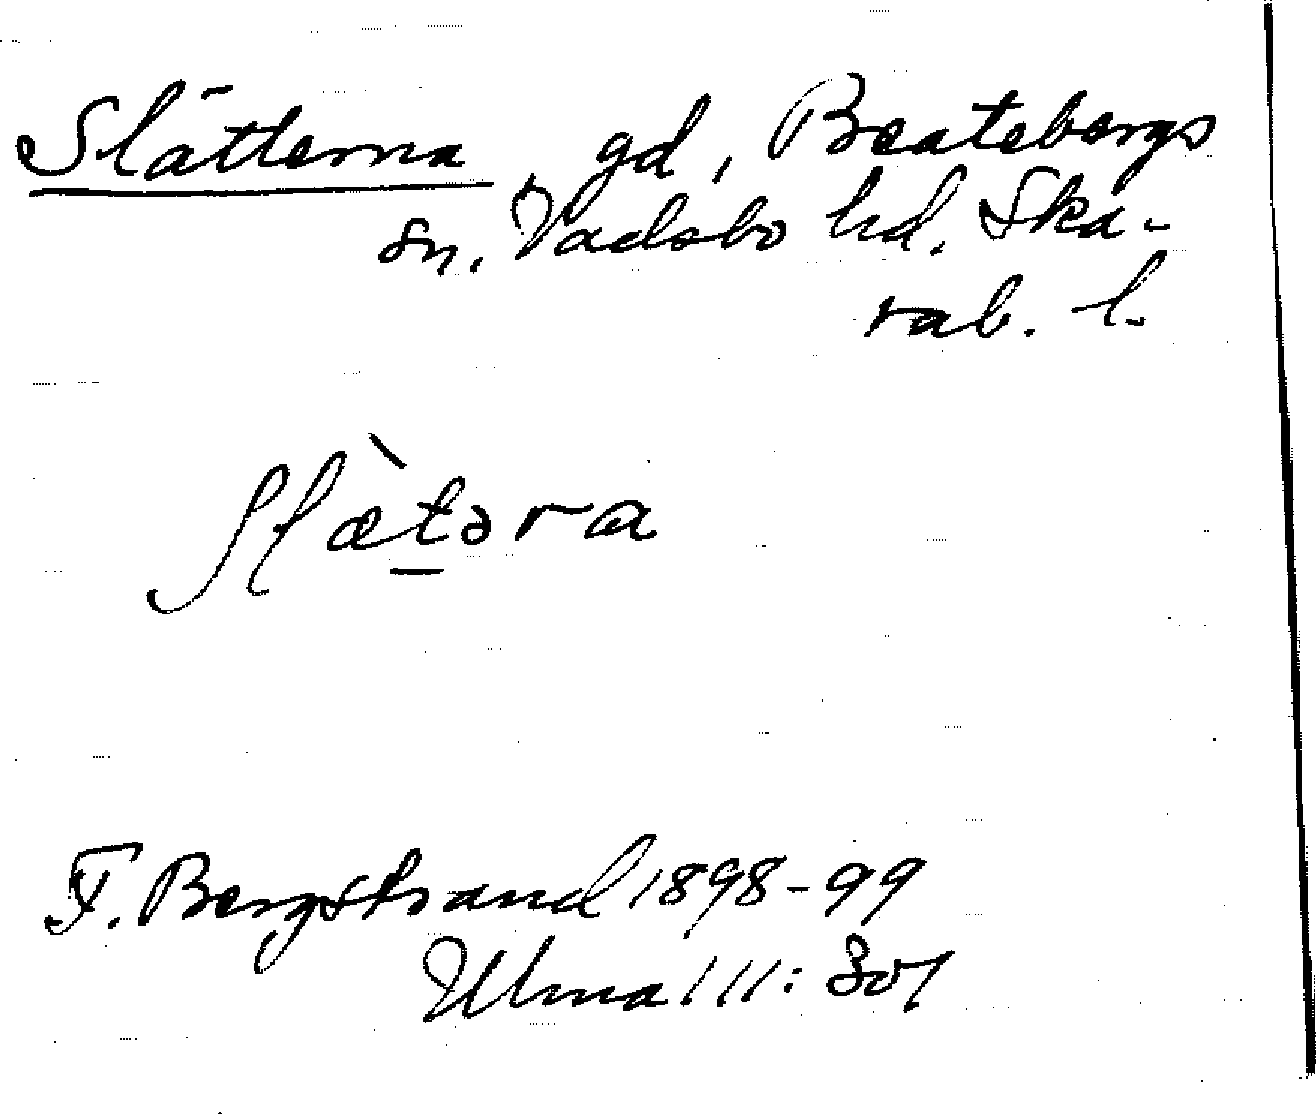 Slätterna gd, Beatebergs
sn. Vadsbo hd. Ska-
rab. l.
slæ̀təra
F. Bergstrand 1898-99
Ulma 111: 301